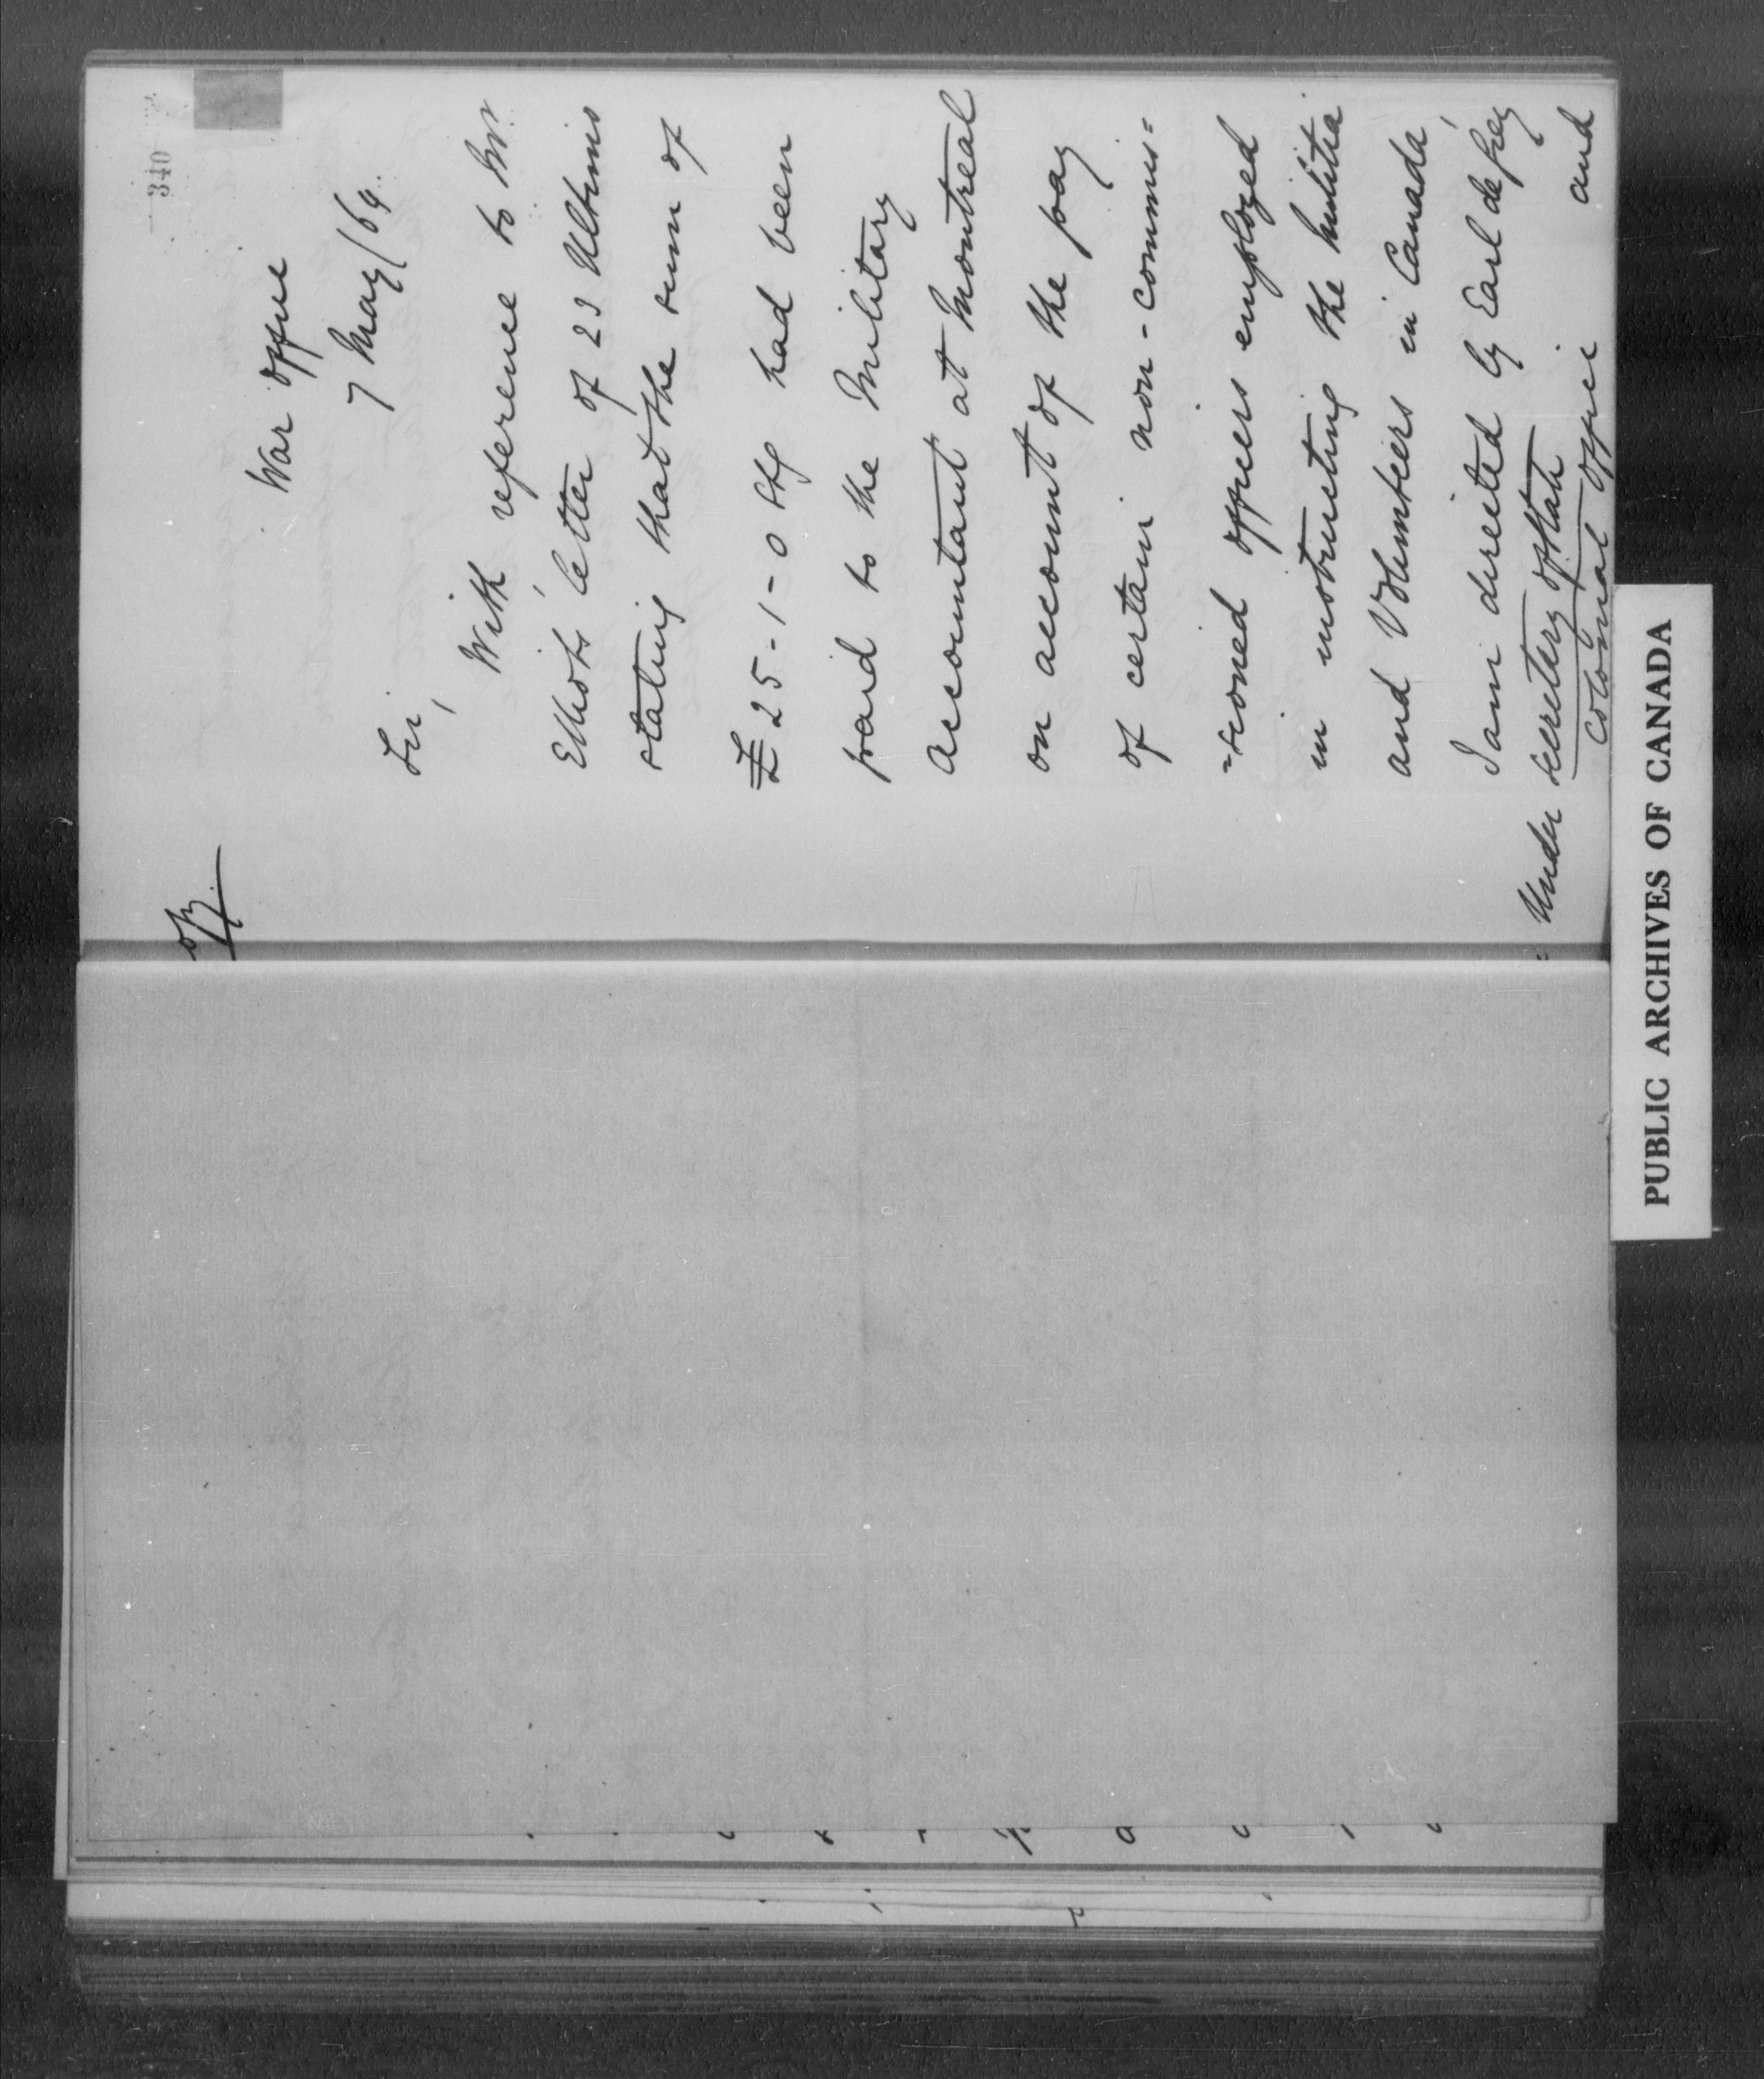 340
War Office
7 May/64.
Sir,
With reference to Mr.
Elliot's letter of 23 Ultimo
stating that the sum of
£25-1-0 Stg had been
paid to the Military
Accountant at Montreal
on account of the pay
of certain non-commis=
=sioned officers employed
in instructing the Militia
and Volunteers in Canada,
I am directed by Earl de Grey
and
Under Secretary of State
Colonial Office
PUBLIC ARCHIVES OF CANADA